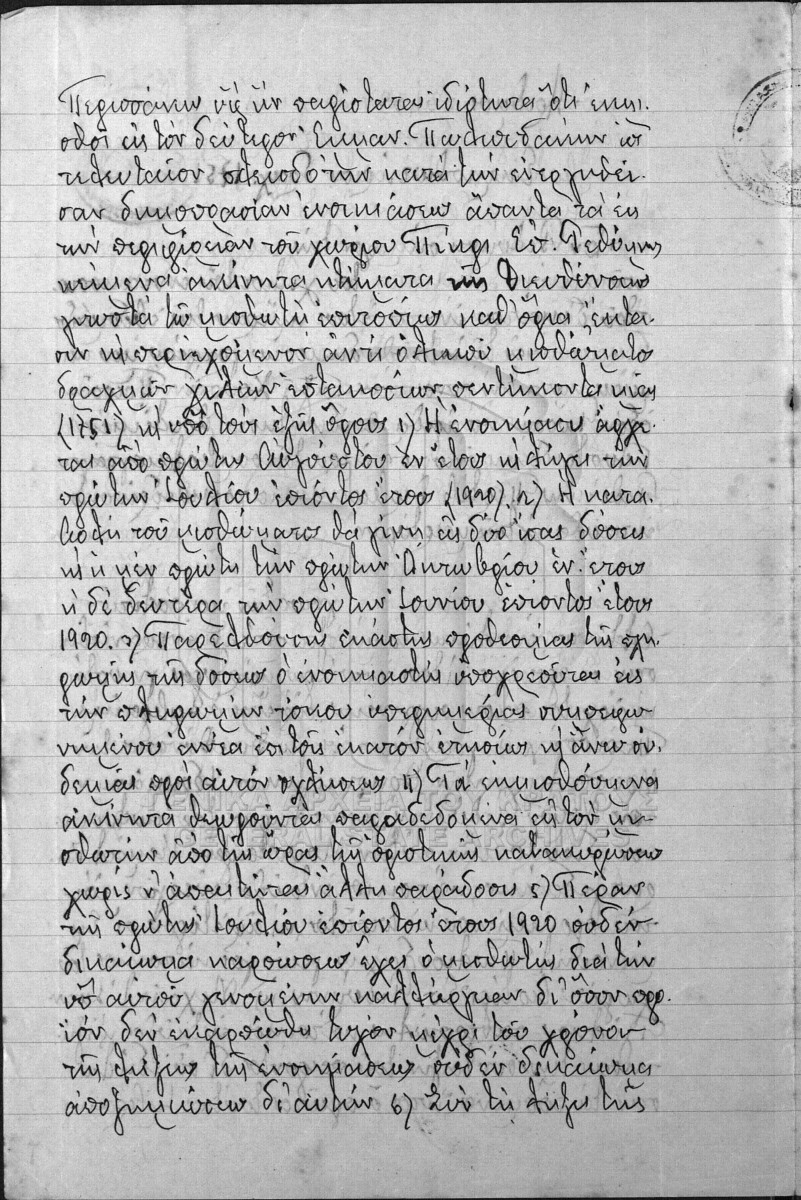 Περισσάκην ὑφ' ἣν παρίσταται ἰδιότητα ὅτι ἐκμι-
σθοῖ εἰς τὸν δεύτερον Ἐμμαν. Παπαπεδάκην ὡς
τελευταῖον πλειοδότην κατὰ τὴν ἐνεργηθεῖ-
σαν δημοπρασίαν ἐνοικιάσεως ἅπαντα τὰ εἰς
τὴν περιφέρειαν τοῦ χωρίου Πηγὴ Ἐπ. Ρεθύμνης
κείμενα ἀκίνητα κτήματα τῆς Διευθύνσεως
γνωστὰ τῷ μισθωτῇ ἐπιτοπίως καθ' ὅρια ἔκτα-
σιν κ περιεχόμενον ἀντὶ ὁλικοῦ μισθώματος
δραχμῶν χιλίων ἑπτακοσίων πεντήκοντα μιᾶς
(1751) κ ὑπὸ τοὺς ἑξῆς ὅρους 1) Ἡ ἐνοικίασις ἄρχε-
ται ἀπὸ πρώτης Αὐγούστου ἐν. ἔτους κ λήγει τὴν
πρώτην Ἰουλίου ἐπιόντος ἔτους (1920). 2) Ἡ κατα-
βολὴ τοῦ μισθώματος θὰ γίνῃ εἰς δύο ἴσας δόσεις
κ ἡ μὲν πρώτη τὴν πρώτην Ὀκτωβρίου ἐν. ἔτους
ἡ δὲ δευτέρα τὴν πρώτην Ἰουνίου ἐπιόντος ἔτους
1920. 3) Παρελθούσης ἑκάστης προθεσμίας τῆς πλη-
ρωμῆς τῆς δόσεως ὁ ἐνοικιαστὴς ὑποχρεοῦται εἰς
τὴν πληρωμὴν τόκου ὑπερημερίας συμπεφω-
νημένου ἐννέα ἐπὶ τοῖς ἑκατὸν ἐτησίως κ ἄνευ οὐ-
δεμιᾶς πρὸς αὐτὸν ὀχλήσεως 4) Τὰ ἐκμισθούμενα
ἀκίνητα θεωροῦνται παραδεδομένα εἰς τὸν μι-
σθωτὴν ἀπὸ τῆς ὥρας τῆς ὁριστικῆς κατακυρώσεως
χωρὶς ν' ἀπαιτῆται ἄλλη παράδοσις 5) Πέραν
τῆς πρώτης Ἰουλίου ἐπιόντος ἔτους 1920 οὐδὲν
δικαίωμα καρπώσεως ἔχει ὁ μισθωτὴς διὰ τὴν
ὑπ' αὐτοῦ γενομένην καλλιέργειαν δι' ὅσον προ-
ϊὸν δὲν ἐκαρπώθη τυχὸν μέχρι τοῦ χρόνου
τῆς λήξεως τῆς ἐνοικιάσεως οὐδὲν δικαίωμα
ἀποζημιώσεως δι' αὐτήν 6) Σὺν τῇ λήξει τῆς